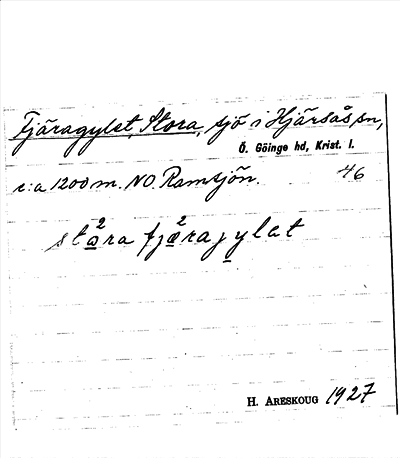 Fjäragylet, Stora, sjö i Hjärsås sn,
Ö. Göinge hd, Krist. l.
c:a 1200 m. NO. Ramsjön. 46
stɑ²ra fjæ²rajylət
H. ARESKOUG 1927